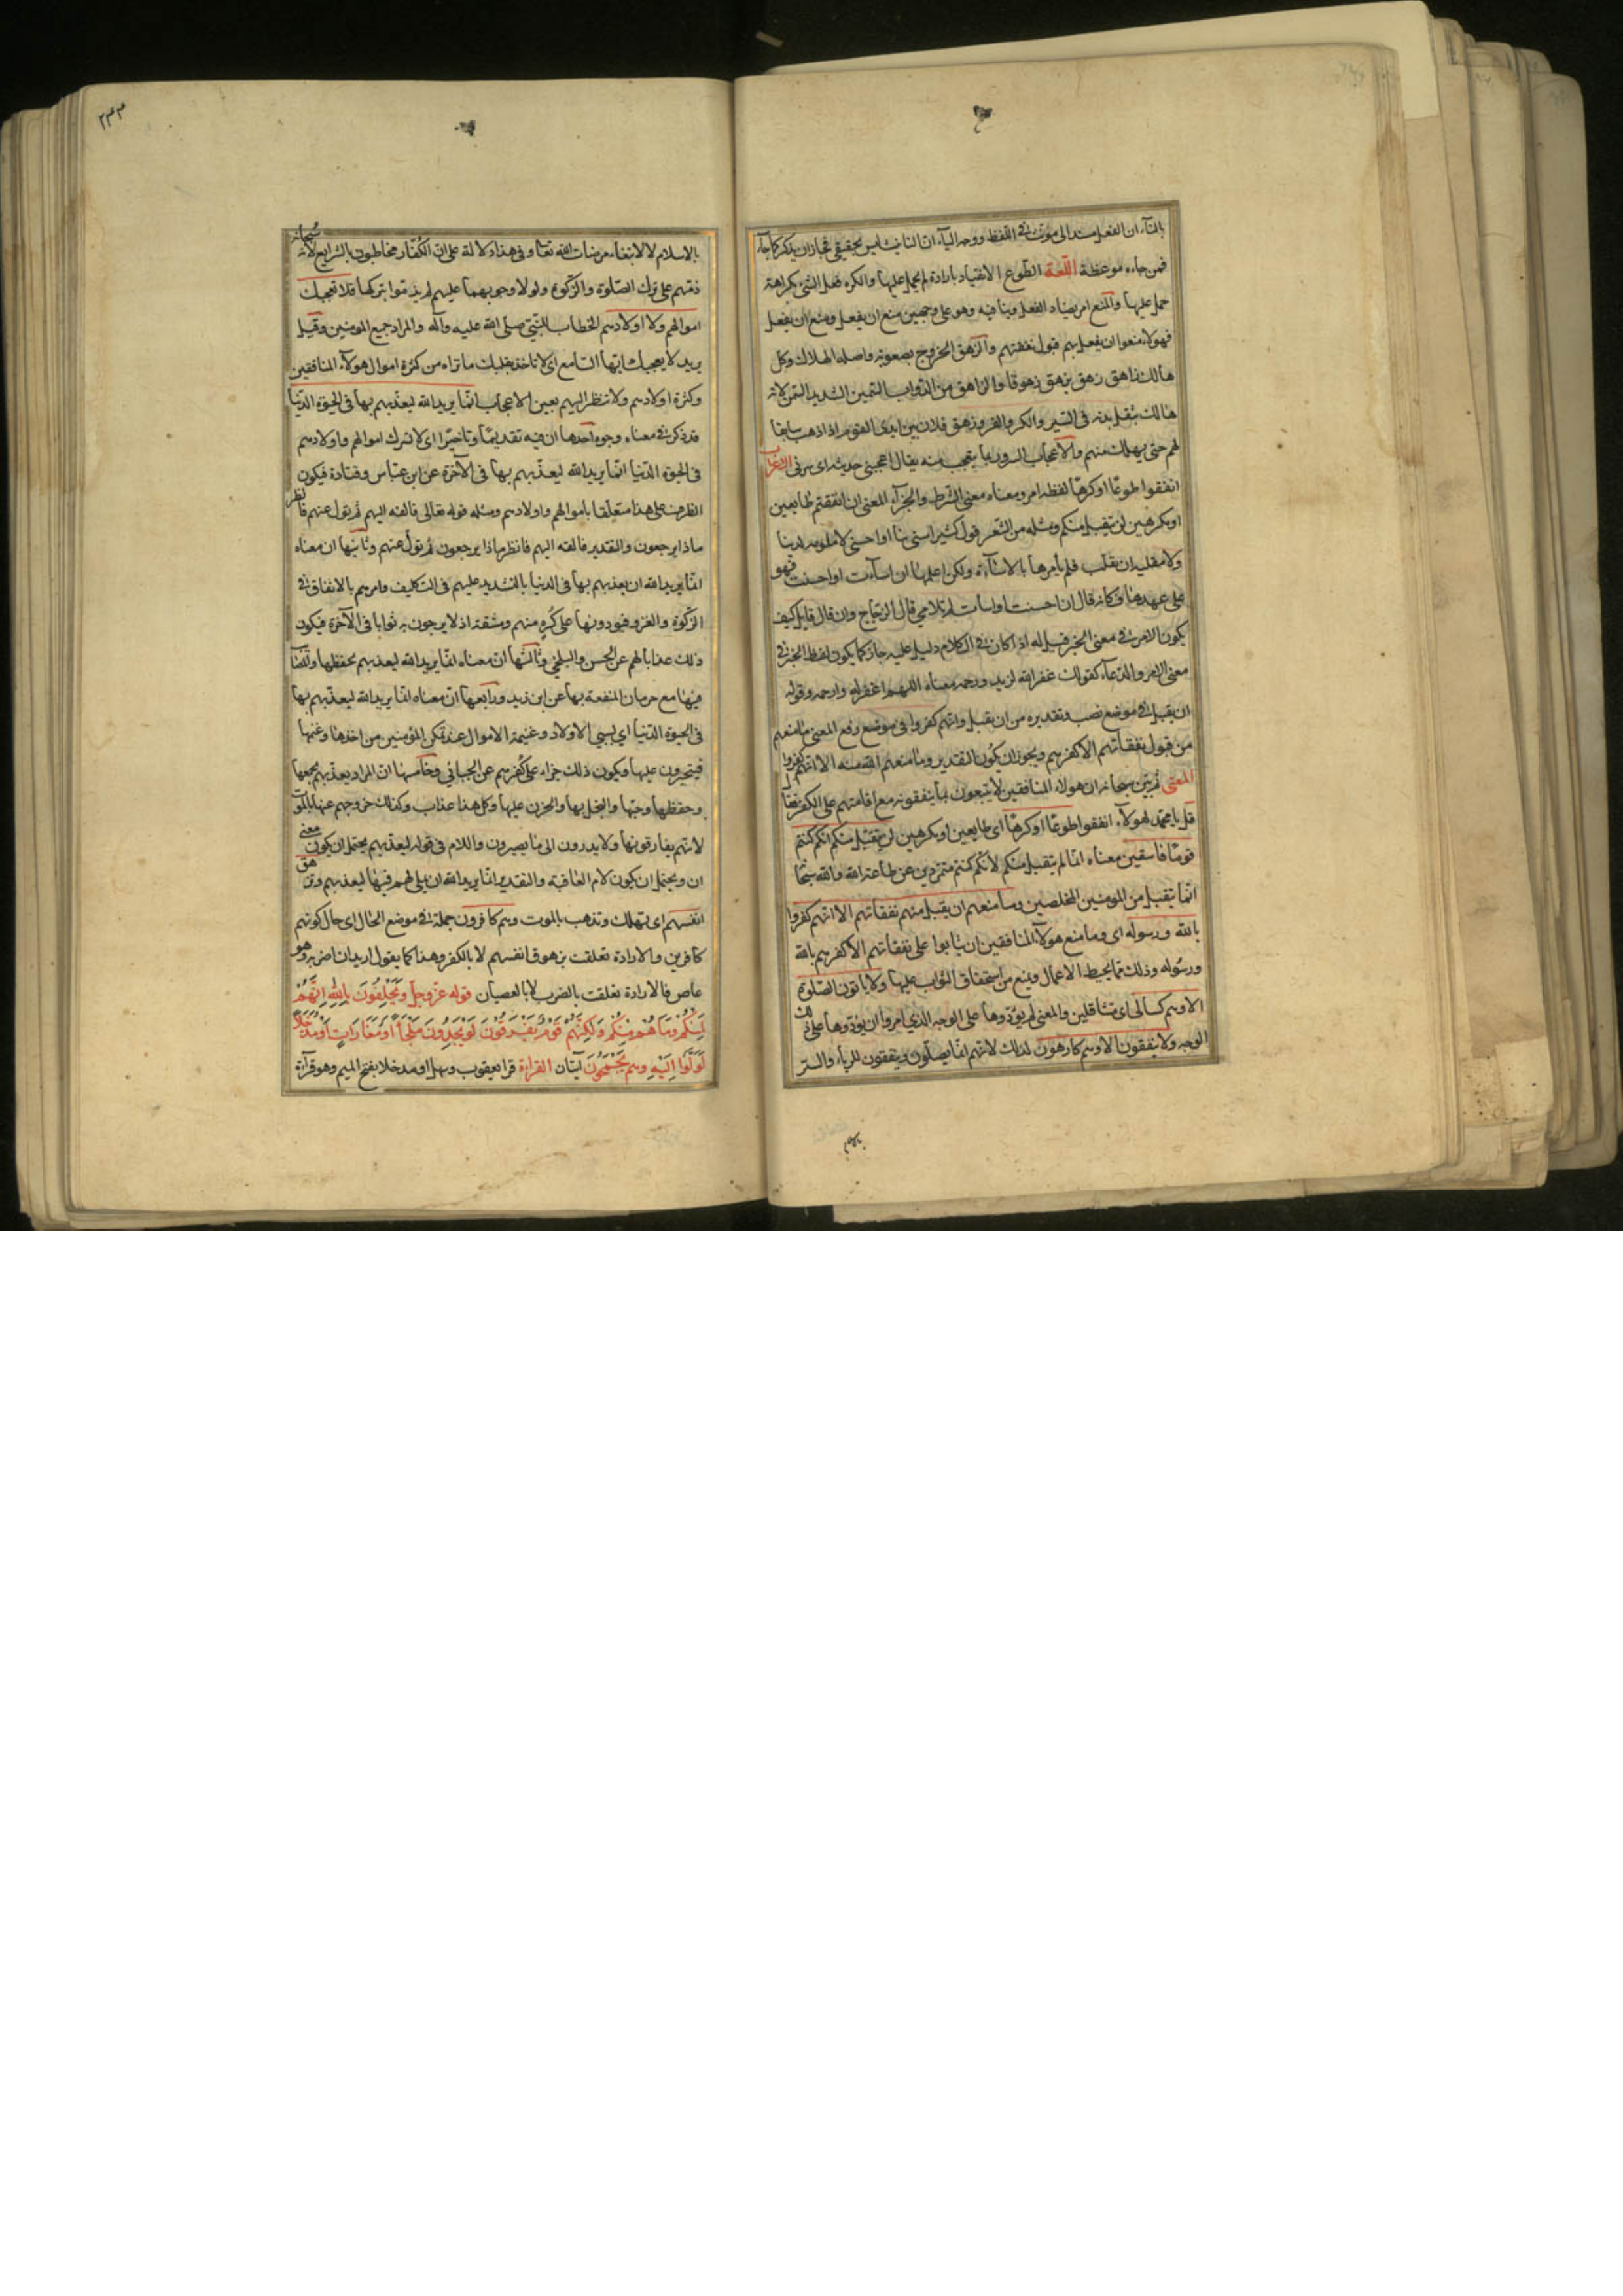 بالتاء ان الفعل مسند الى مونث في اللفظ ووجه الياء ان التانيث ليس بحقيقي فجاز ان يذكر كما جاء
فمن جاءه موعظة اللغة الطوع الانقياد بارادة لم يحمل عليها والكره فعل الشئ بكراهة
حمل عليها والمنع امر يضاد الفعل وينافيه وهو على وجهين منع ان يفعل ومنع ان يفعل
فهولاء منعوا ان يفعل بهم قبول نفقتهم والزهق الخروج بصعوبة واصله الهلاك وكل
هالك زاهق زهق يزهق زهوقا والزاهق من الدواب السمين الشديد السمن لانه
هالك بثقل بدنه في السير والكر والفر وزهق فلان بين ايدي القوم اذا ذهب سابقا
لهم حتى يهلك منهم والاعجاب السرور بما يتعجب منه يقال اعجبني حديثه اى سرني الاعراب
انفقوا طوعا اوكرها لفظه امر ومعناه معنى الشرط والجزآء المعنى ان انفقتم طايعين
اومكرهين لن يتقبل منكم ومثله من الشعر قول كثير اسئى بنا او احسنى لا ملومة لدينا
ولا مقلية ان تقلت فلم يأمرها بالاسآءة ولكن اعلمها ان اسآءت او احسنت فهو
على عهدها فكانه قال ان احسنت او اسأت لم تلامي قال الزجاج وان قال قايل كيف
يكون الامر في معنى الخبر قيل له اذا كان في الكلام دليل عليه جاز كما يكون لفظ الخبر في
معنى الامر والدعآء كقولك غفر الله لزيد ورحمه معناه اللهم اغفر له وارحمه وقوله
ان يقبل في موضع نصب وتقديره من ان يقبل وانهم كفروا في موضع رفع المعنى ما منعهم
من قبول نفقاتهم الا كفرهم ويجوز ان يكون التقدير وما منعهم الله منه الا انهم كفروا
المعنى ثم بين سبحانه ان هولاء المنافقين لا ينتفعون بما ينفقونه مع اقامتهم على الكفر فقال
قل يا محمد لهولآء انفقوا طوعا اوكرها اى طايعين اومكرهين لن يتقبل منكم انكم كنتم
قوما فاسقين معناه انما لم يتقبل منكم لانكم كنتم متمردين عن طاعة الله والله سبحا
انما يتقبل من المومنين المخلصين وما منعهم ان يقبل منهم نفقاتهم الا انهم كفروا
بالله ورسوله اى وما منع هولآء المنافقين ان يثابوا على نفقاتهم الا كفرهم بالله
ورسوله وذلك مما يحبط الاعمال ويمنع من استحقاق الثواب عليها ولا ياتون الصلوة
الا وهم كسالى اى متثاقلين والمعنى لم يؤدوها على الوجه الذي امروا ان يؤدوها على ذلك
الوجه ولا ينفقون الا وهم كارهون لذلك لانهم انما يصلون وينفقون للرياء والستر
بالا
۲۴۴
بالاسلام لا لابتغاء مرضات الله تعا وفي هذا دلالة على ان الكفار مخاطبون بالشرايع لانه سبحانه
ذمهم على ترك الصلوة والزكوة ولولا وجوبهما عليهم لم يذموا بتركهما فلا تعجبك
اموالهم ولا اولادهم الخطاب للنبي صلى الله عليه وآله والمراد جميع المومنين وقيل
يريد لا يعجبك ايها السامع اى لا تاخذ بقلبك ما تراه من كثرة اموال هولآء المنافقين
وكثرة اولادهم ولا تنظر اليهم بعين الاعجاب انما يريد الله ليعذبهم بها في الحيوة الدنيا
قد ذكر في معناه وجوه احدها ان فيه تقديما وتاخيرا اى لا تسرك اموالهم واولادهم
في الحيوة الدنيا انما يريد الله ليعذبهم بها في الآخرة عن ابن عباس وقتادة فيكون
الظرف على هذا متعلقا باموالهم واولادهم ومثله قوله تعالى فالقه اليهم ثم تول عنهم فانظر
ماذا يرجعون والتقدير فالقه اليهم فانظر ماذا يرجعون ثم تول عنهم وثانيها ان معناه
انما يريد الله ان يعذبهم بها في الدنيا بالتشديد عليهم في التكليف وامرهم بالانفاق في
الزكوة والغزو فيودونها على كره منهم ومشقة اذ لا يرجون به ثوابا في الآخرة فيكون
ذلك عذابا لهم عن الحسن والبلخي وثالثها ان معناه انما يريد الله ليعذبهم بحفظها والمصا
فيها مع حرمان المنفعة بها عن ابن زيد ورابعها ان معناه انما يريد الله ليعذبهم بها
في الحيوة الدنيا اي بسبي الاولاد وغنيمة الاموال عند تمكن المؤمنين من اخذها وغنمها
فيتحسرون عليها ويكون ذلك جزاء على كفرهم عن الجبائي وخامسها ان المراد يعذبهم بجمعها
وحفظها وحبها والبخل بها والحزن عليها وكل هذا عذاب وكذلك خروجهم عنها بالموت
لانهم يفارقونها ولا يدرون الى ما يصيرون واللام في قوله ليعذبهم يحتمل ان يكون معنى
ان ويحتمل ان يكون لام العاقبة والتقدير انما يريد الله ان يملي لهم فيها ليعذبهم وتزهق
انفسهم اى تهلك وتذهب بالموت وهم كافرون جملة في موضع الحال اى حال كونهم
كافرين والارادة تعلقت بزهوق انفسهم لا بالكفر وهذا كما يقول اريد ان اضربه وهو
عاص فالارادة تعلقت بالضرب لا بالعصيان قوله عز وجل وَيَحْلِفُونَ بِاللهِ اِنَّهُمْ
لَمِنْكُمْ وَمَا هُمْ مِنْكُمْ وَلكِنَّهُمْ قَوْمٌ يَفْرَقُونَ لَوْ يَجِدُونَ مَلْجَأً اَوْ مَغَارَاتٍ اَوْ مُدَّخَلًا
لَوَلَّوْا اِلَيْهِ وهم يَجْمَحُونَ آيتان القراءة قرا يعقوب وسهل او مدخلا بفتح الميم وهو قرآءة